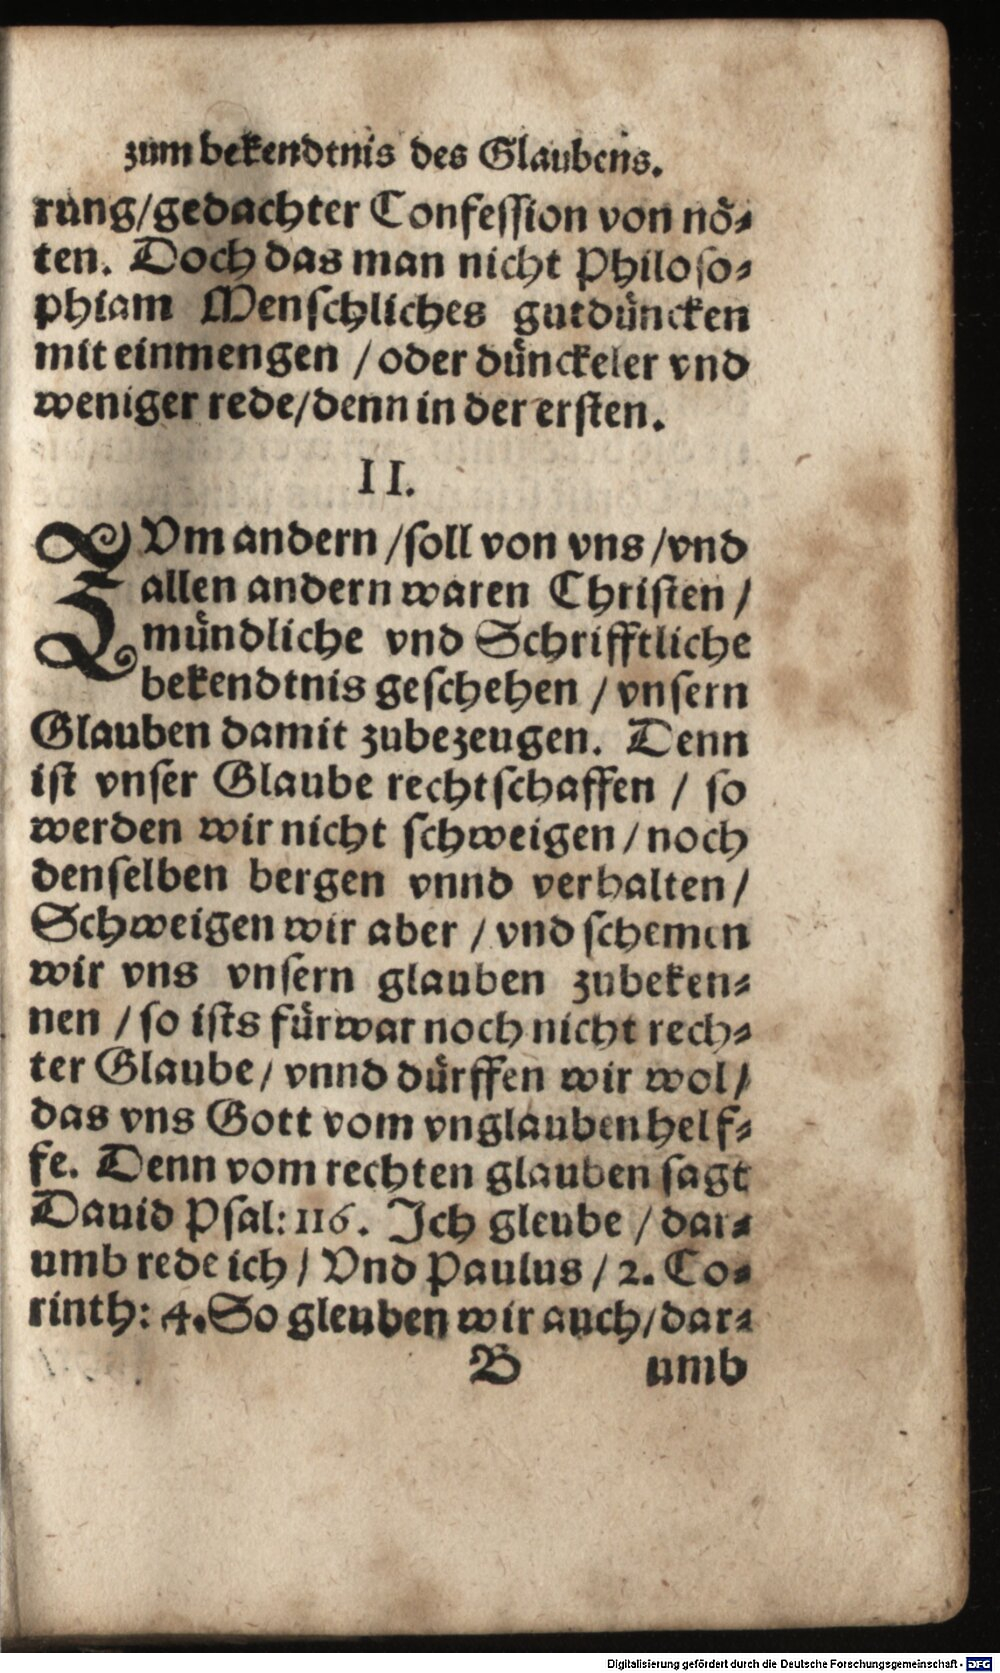 zum bekendtnis des Glaubens.
rung/gedachter Confession von nö⸗
ten. Doch das man nicht Philoso⸗
phiam Menschliches gutdüncken
mit einmengen / oder dünckeler vnd
weniger rede/denn in der ersten.
II.
ZVm andern /soll von vns /vnd
allen andern waren Christen /
mündliche vnd Schrifftliche
bekendtnis geschehen / vnsern
Glauben damit zubezeugen. Denn
ist vnser Glaube rechtschaffen / so
werden wir nicht schweigen / noch
denselben bergen vnnd verhalten /
Schweigen wir aber / vnd schemen
wir vns vnsern glauben zubeken⸗
nen / so ists fürwar noch nicht rech⸗
ter Glaube / vnnd dürffen wir wol /
das vns Gott vom vnglauben helf⸗
fe. Denn vom rechten glauben sagt
Dauid Psal: 116. Ich gleube / dar⸗
umb rede ich / Vnd Paulus / 2. Co⸗
rinth: 4. So gleuben wir auch / dar⸗
B umb
Digitalisierung gefördert durch die Deutsche Forschungsgemeinschaft - DFG